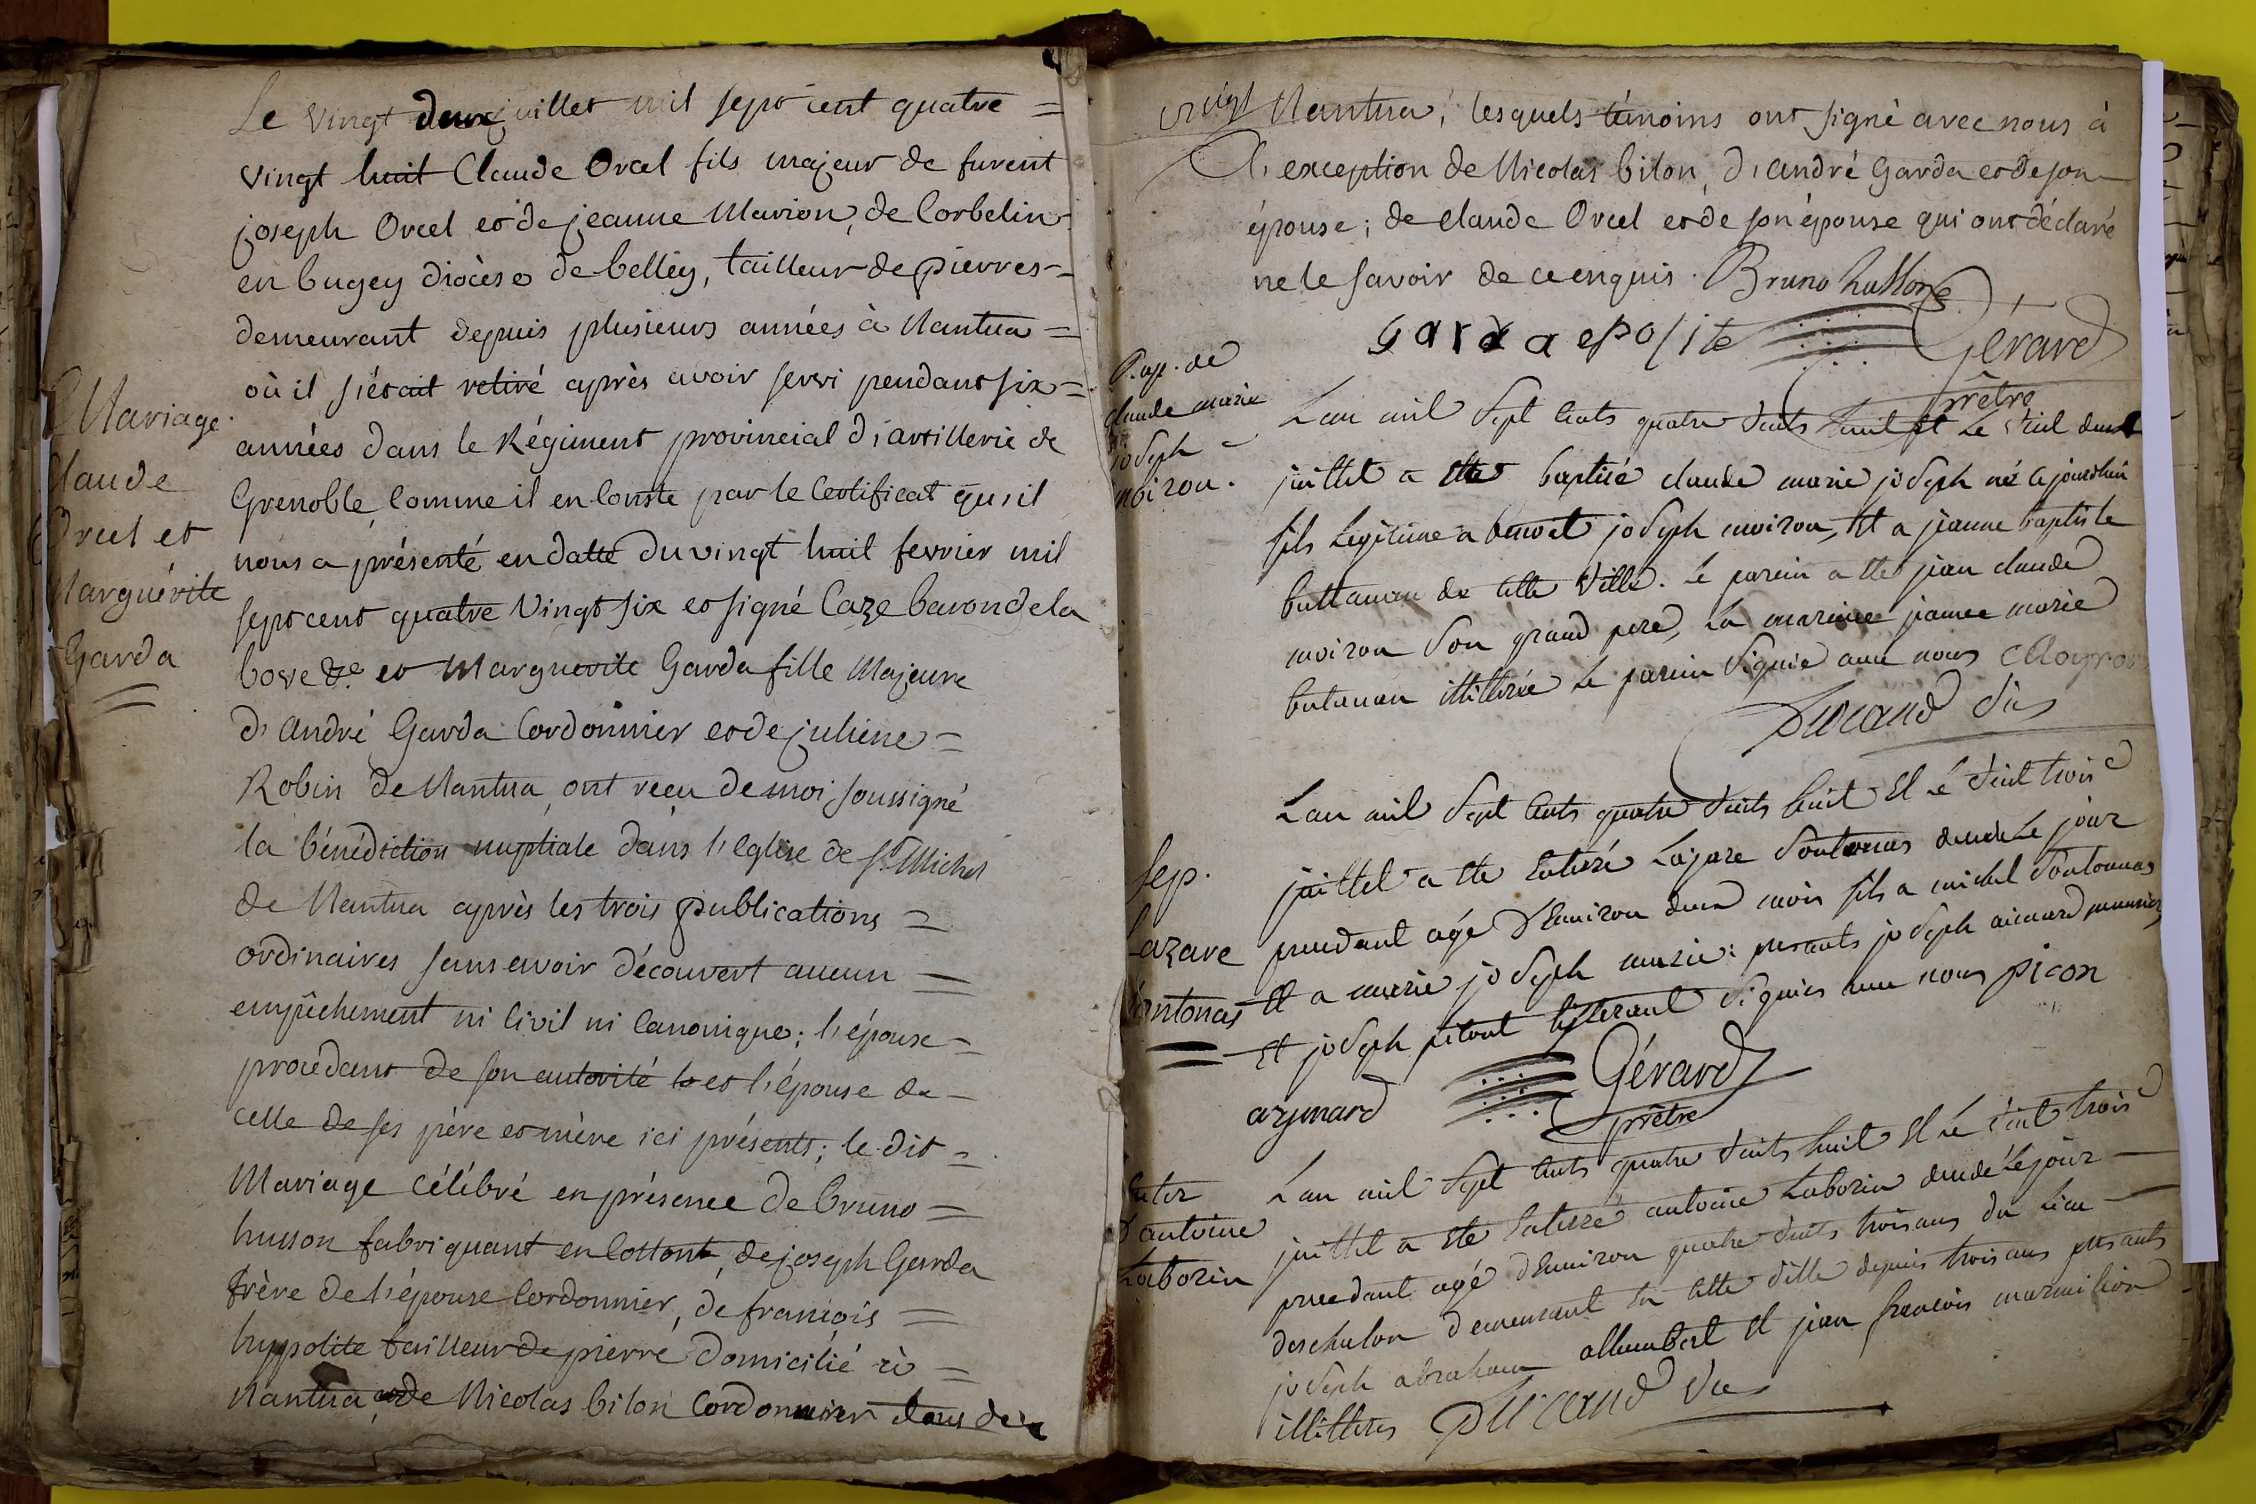 Le vingt deux juillet mil sept cent quatre =
vingt huit Claude Orcel fils majeur de furent
joseph Orcel et de jeanne Marion, de Corbelin
en bugey diocèse de belley, tailleur de pierres =
demeurant depuis plusieurs années à Nantua =
où il s'était retiré après avoir servi pendant six =
années dans le Régiment provincial d'artillerie de
Grenoble, comme il en conste par le Certificat qu'il
nous a présenté en datte du vingt huit fevrier mil
sept cent quatre vingt six et signé Caze baron de la
bove &c. et Marguerite Garda fille Majeure
d'andré Garda Cordonnier et de juliene =
Robin de Nantua, ont reçu de moi soussigné
la bénédiction nuptiale dans l'Eglise de St. Michel
de Nantua après les trois publications =
ordinaires sans avoir découvert aucun =
empêchement ni Civil ni Canonique; l'épouse =
procédant de son autorité et l'épouse de
celle de ses père et mère ici présents; le dit =
Mariage célébré en présence de bruno =
husson fabriquant en Cottont, de joseph Garda
frère de l'épouse Cordonnier, de françois =
hyppolite tailleur de pierre domicilié à =
Nantua et de Nicolas bilon Cordonnier
Mariage
Claude
Orcel et
Marguérite
Garda
Nantua; lesquels témoins ont signé avec nous à
l'exception de Nicolas bilon, d'andré Garda et de son
épouse; de claude Orcel et de son épouse qui ont déclaré
ne le savoir de ce enquis. Bruno husson
Garda epolite Gérard
prêtre
Bap. de
claude marie
joseph
moizon.
Lan mil sept cents quatre vints huit et le vint deux
juillet a ette baptisé claude marie joseph né cejourdhui
fils legitime a benoit joseph moizon, et a jeanne baptiste
buttavan de cette ville. le parein a ete jean claude
moizon son grand pere, la mareine jeanne marie
butavan illitérée le parein signé avec nous
Ducand vic
Lan mil sept cents quatre vints huit et le vint trois
juillet a ete enterré Lazare Sontonas decedé le jour
precedant agé d'environ deux mois fils a michel Sontonnas
et a marie joseph marie: presents joseph aimard
et joseph picont signés avec nous picon
azimard Gérard
prêtre
Sep.
Lazare
Sontonas
Lan mil sept cents quatre vints huit et le vint trois
juillet a ete enterré antoine Laborin decedé le jour
precedant agé d'environ quatre vints trois ans du lieu
deschalon demeurant en cette ville depuis trois ans presents
joseph abraham allumbert et jean françois marmilion
illittérés Ducand vic
Enter
d'antoine
Laborin